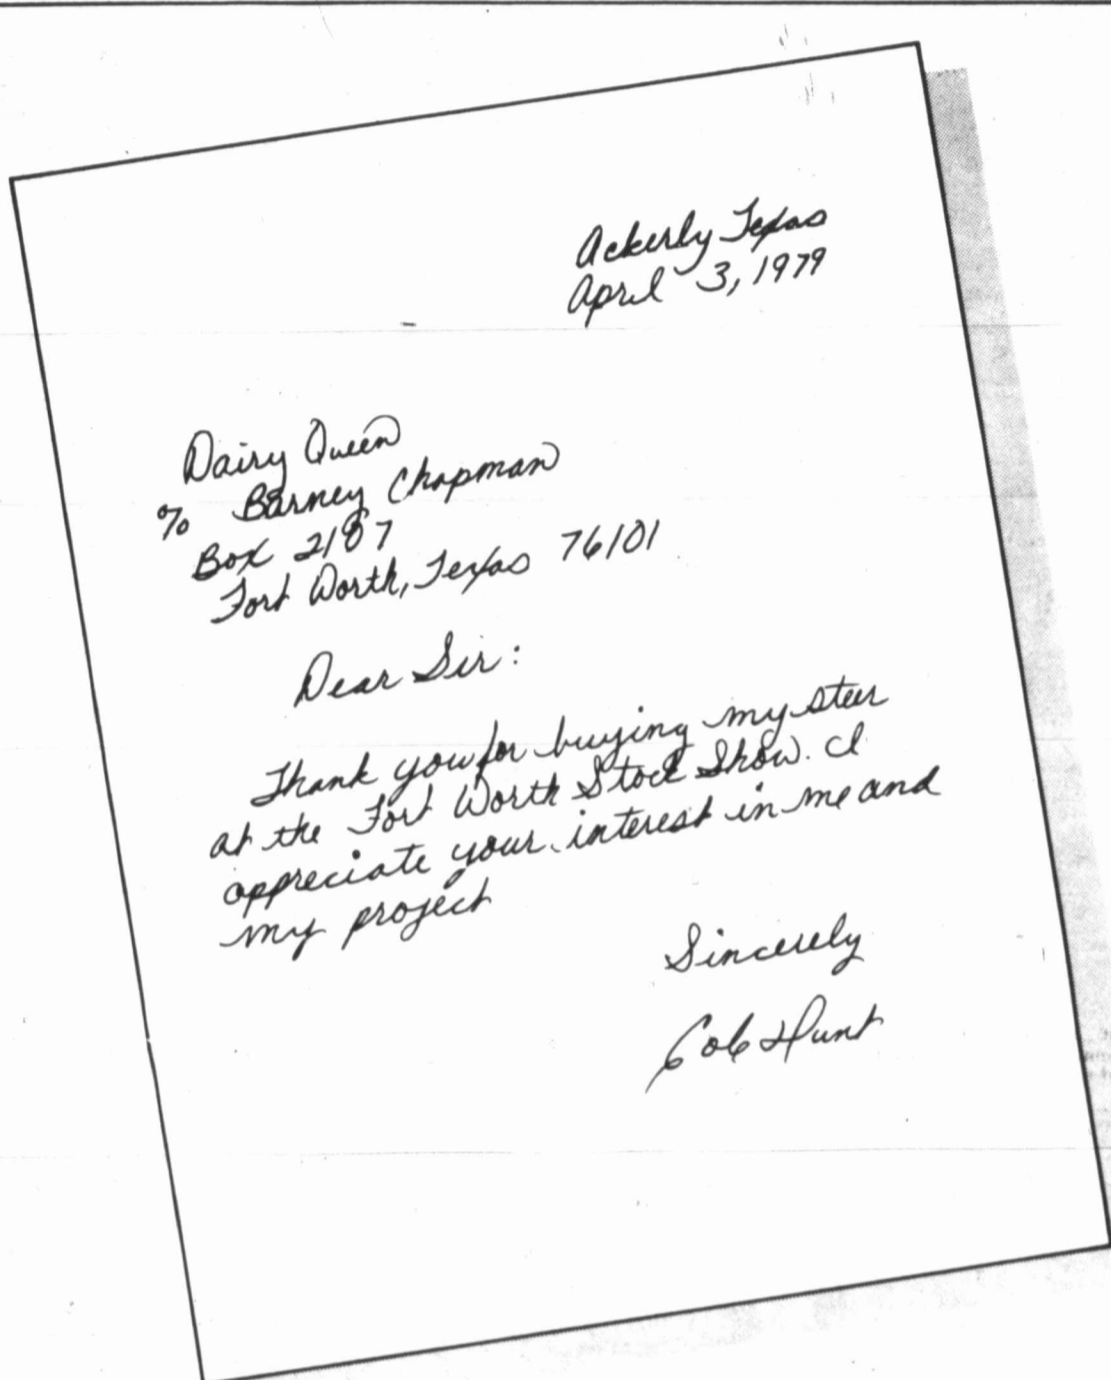 Ackerly Texas
April 3, 1979
Dairy Queen
% Barney Chapman
Box 2187
Fort Worth, Texas 76101
Dear Sir:
Thank you for buying my steer
at the Fort Worth Stock Show. I
appreciate your interest in me and
my project
Sincerely
Hunt